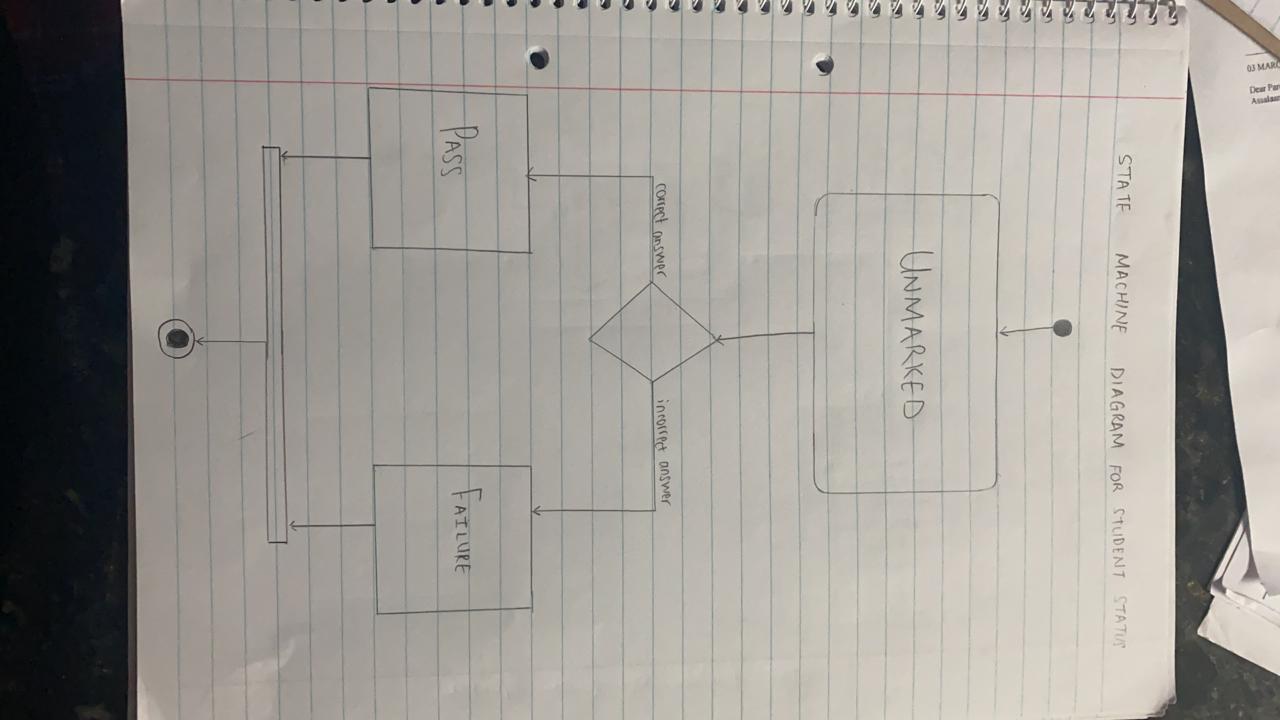 STATE MACHINE DIAGRAM FOR STUDENT STATUS
UNMARKED
correct answer
incorrect answer
PASS
FAILURE
03 MARC
Dear Par
Assalaam